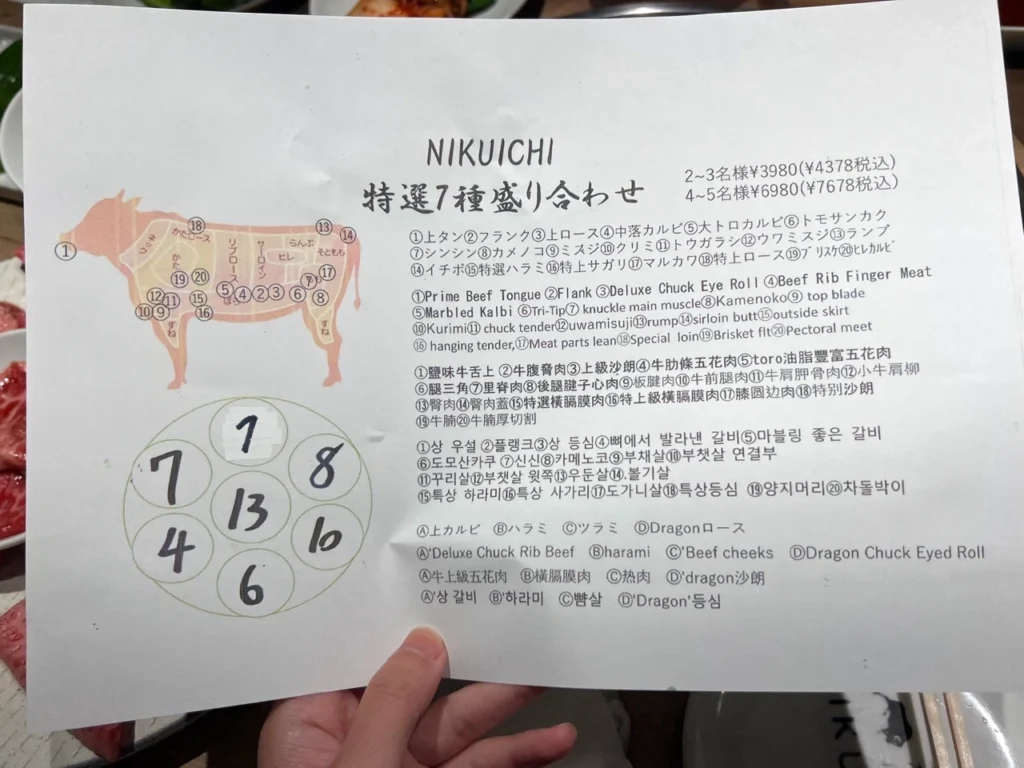 NIKUICHI
特選7種盛り合わせ
2~3名様¥3980(¥4378税込)
4~5名様¥6980(¥7678税込)
①上タン②フランク③上ロース④中落カルビ⑤大トロカルビ⑥トモサンカク
⑦シンシン⑧カメノコ⑨ミスジ⑩クリミ⑪トウガラシ⑫ウワミスジ⑬ランプ
⑭イチボ⑮特選ハラミ⑯特上サガリ⑰マルカワ⑱特上ロース⑲ブリスケ⑳ヒレカルビ
①Prime Beef Tongue ②Flank ③Deluxe Chuck Eye Roll ④Beef Rib Finger Meat
⑤Marbled Kalbi ⑥Tri-Tip⑦ knuckle main muscle⑧Kamenoko⑨ top blade
⑩Kurimi⑪ chuck tender⑫uwamisuji⑬rump⑭sirloin butt⑮outside skirt
⑯ hanging tender,⑰Meat parts lean⑱Special loin⑲Brisket flt⑳Pectoral meet
①鹽味牛舌上 ②牛腹脅肉③上級沙朗④牛肋條五花肉⑤toro油脂豐富五花肉
⑥腿三角⑦里脊肉⑧後腿腱子心肉⑨板腱肉⑩牛前腿肉⑪牛肩胛骨肉⑫小牛肩柳
⑬臀肉⑭臀肉蓋⑮特選橫膈膜肉⑯特上級橫膈膜肉⑰膝圓边肉⑱特別沙朗
⑲牛腩⑳牛腩厚切割
①상 우설 ②플랭크③상 등심④뼈에서 발라낸 갈비⑤마블링 좋은 갈비
⑥도모산카쿠 ⑦신신⑧카메노코⑨부채살⑩부챗살 연결부
⑪꾸리살⑫부챗살 윗쪽⑬우둔살⑭.볼기살
⑮특상 하라미⑯특상 사가리⑰도가니살⑱특상등심 ⑲양지머리⑳차돌박이
Ⓐ上カルビ Ⓑハラミ Ⓒツラミ ⒹDragonロース
Ⓐ'Deluxe Chuck Rib Beef Ⓑharami Ⓒ'Beef cheeks ⒹDragon Chuck Eyed Roll
Ⓐ牛上級五花肉 Ⓑ橫膈膜肉 Ⓒ热肉 Ⓓ'dragon沙朗
Ⓐ'상 갈비 Ⓑ'하라미 Ⓒ뺨살 Ⓓ'Dragon'등심
① ⑱ ⑬ ⑭
ネック かたロース かた リブロース サーロイン ヒレ らんぷ そともも
⑲ ⑳ ⑤ ④ ② ③ ⑥ ⑦ ⑰ ⑧
⑫ ⑪ ⑮ ⑩ ⑨ ⑯
すね すね
1
7 8
13
4 10
6